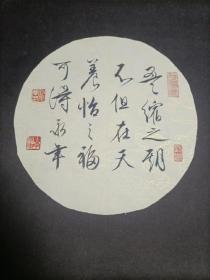 盈缩之期
不但在天
養怡之福
可得永年